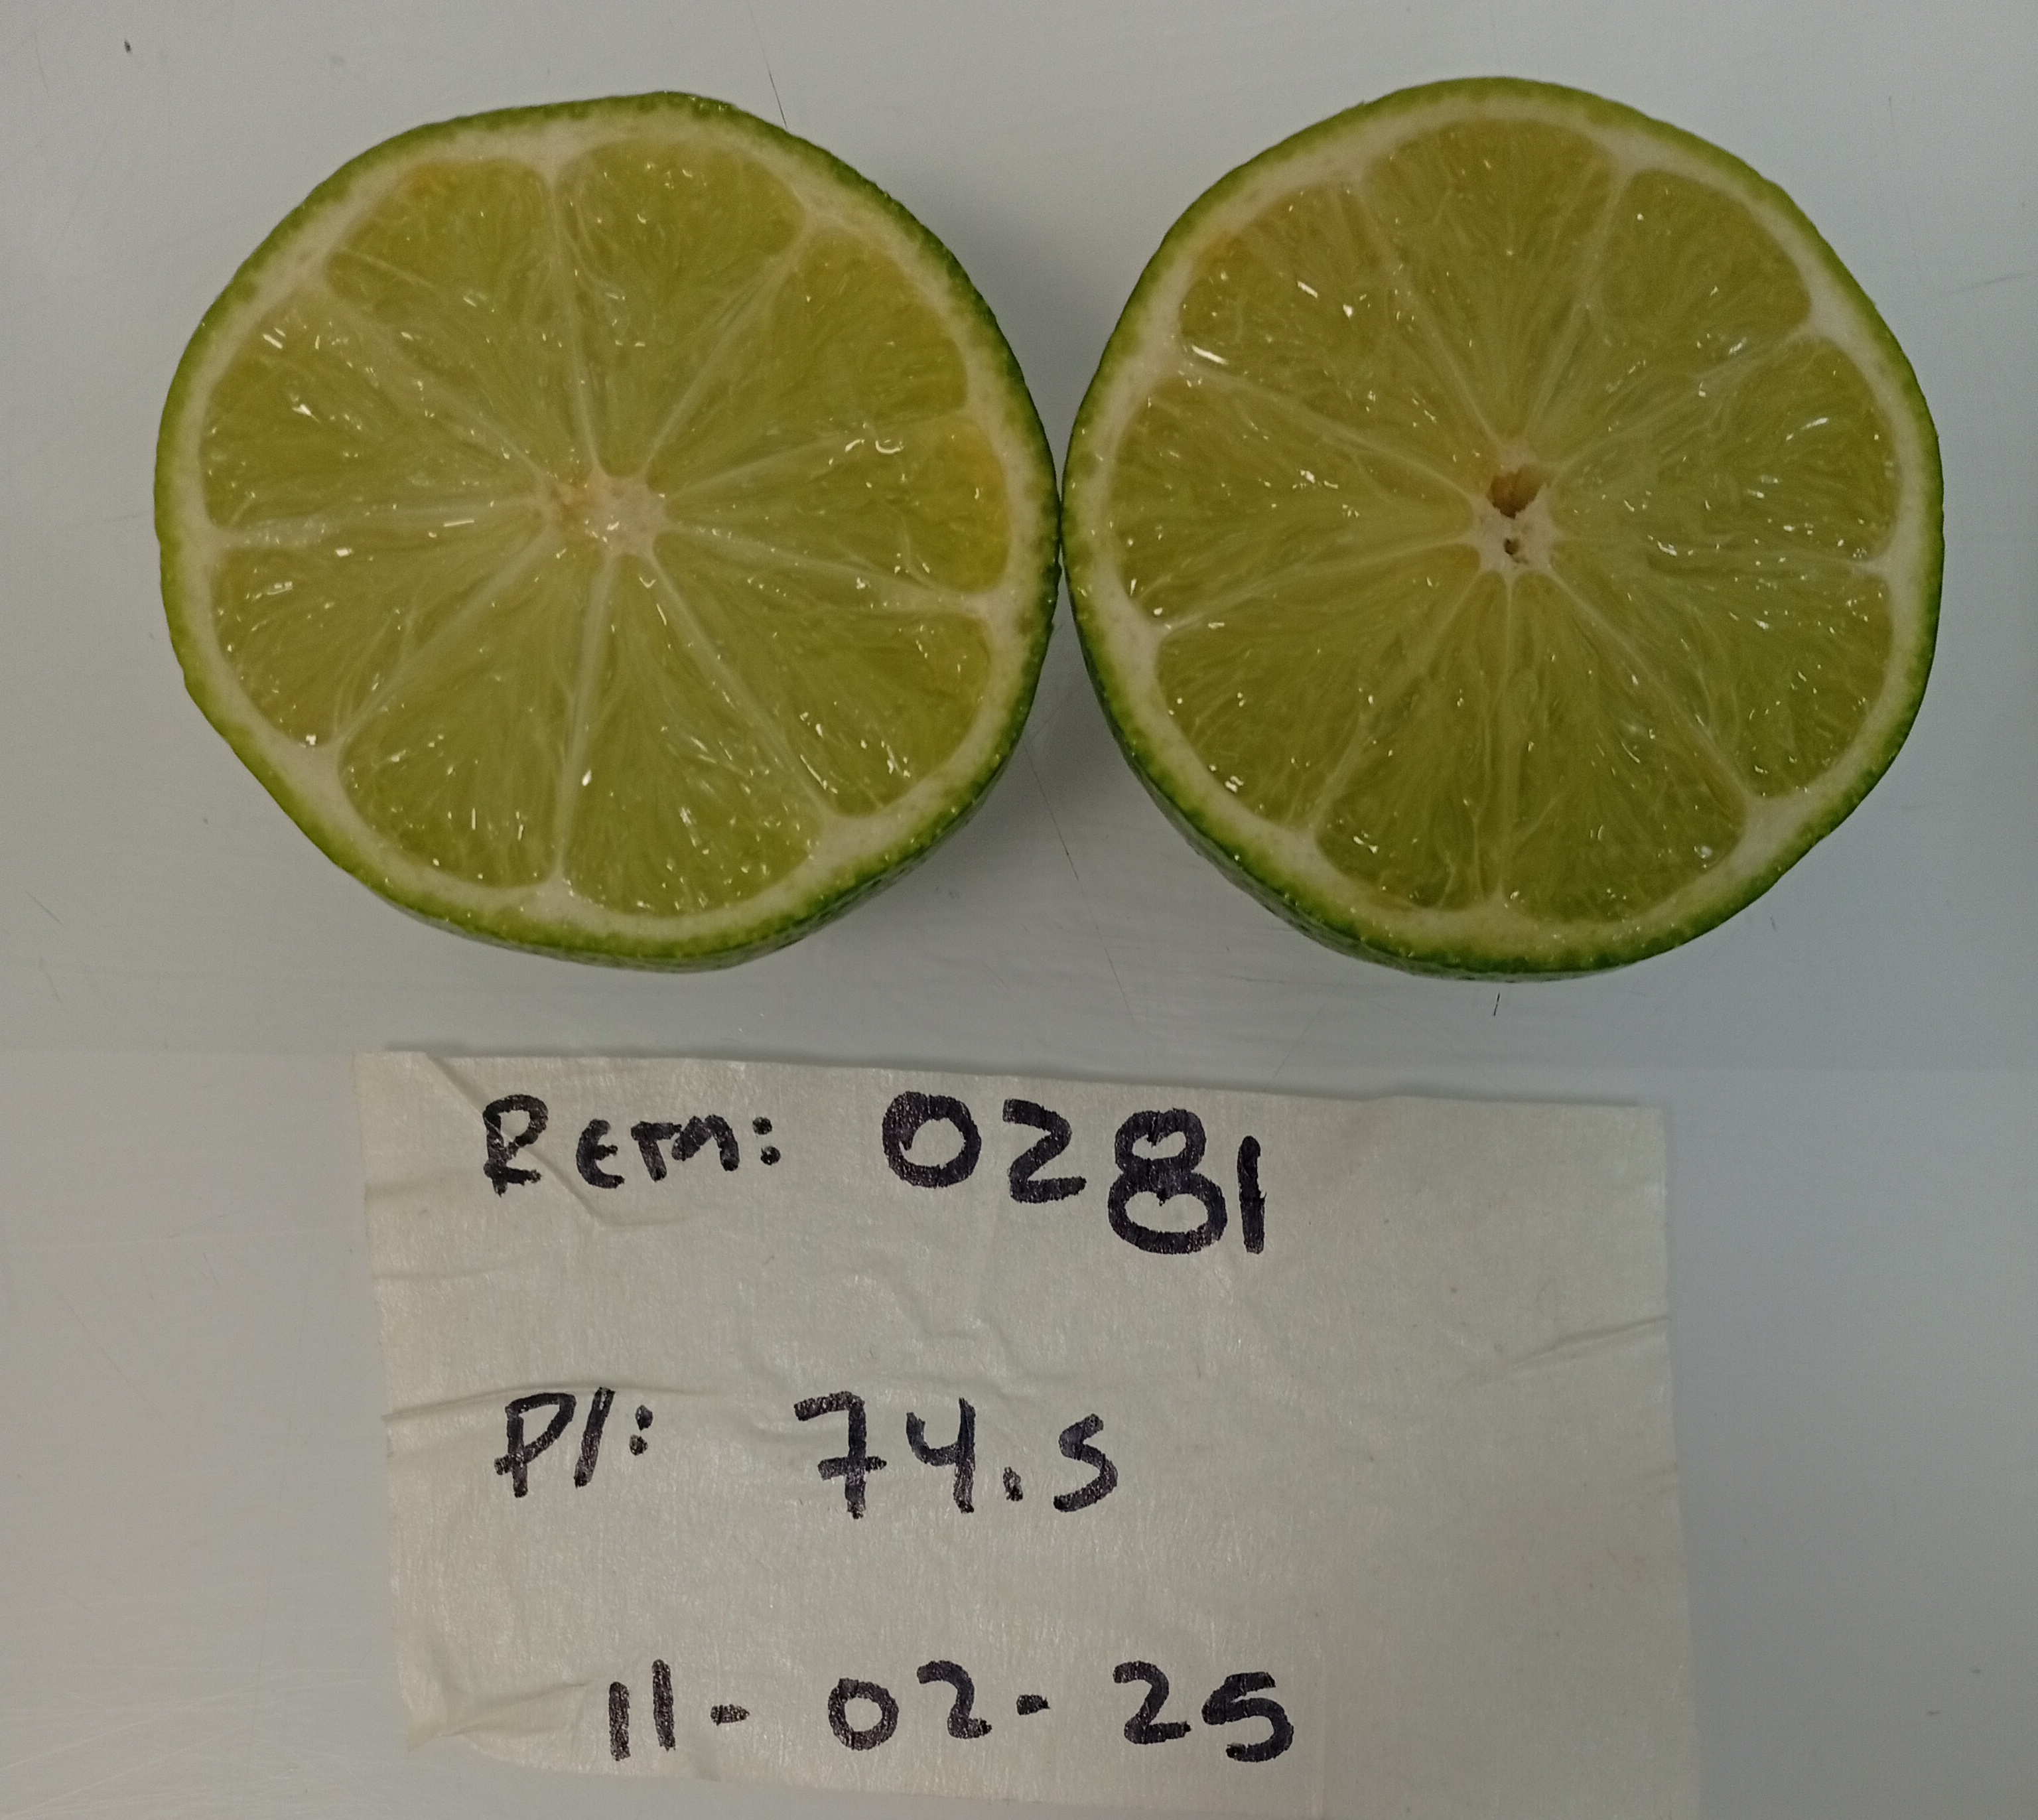 Rem: 0281
P/: 74.5
11-02-25